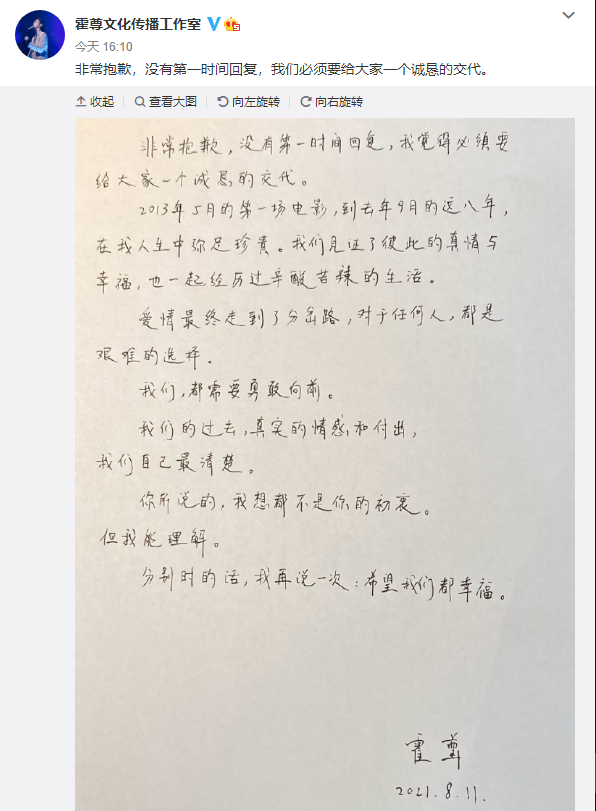 霍尊文化传播工作室
今天 16:10
非常抱歉，没有第一时间回复，我们必须要给大家一个诚恳的交代。
收起 查看大图 向左旋转 向右旋转
非常抱歉，没有第一时间回复，我觉得必须要
给大家一个诚恳的交代。
2013年5月的第一场电影，到去年9月的这八年，
在我人生中弥足珍贵。我们见证了彼此的真情与
幸福，也一起经历过辛酸苦辣的生活。
爱情最终走到了分岔路，对于任何人，都是
艰难的选择.
我们，都需要勇敢向前。
我们的过去，真实的情感和付出，
我们自己最清楚。
你所说的，我想都不是你的初衷。
但我能理解。
分别时的话，我再说一次：希望我们都幸福。
霍尊
2021.8.11.